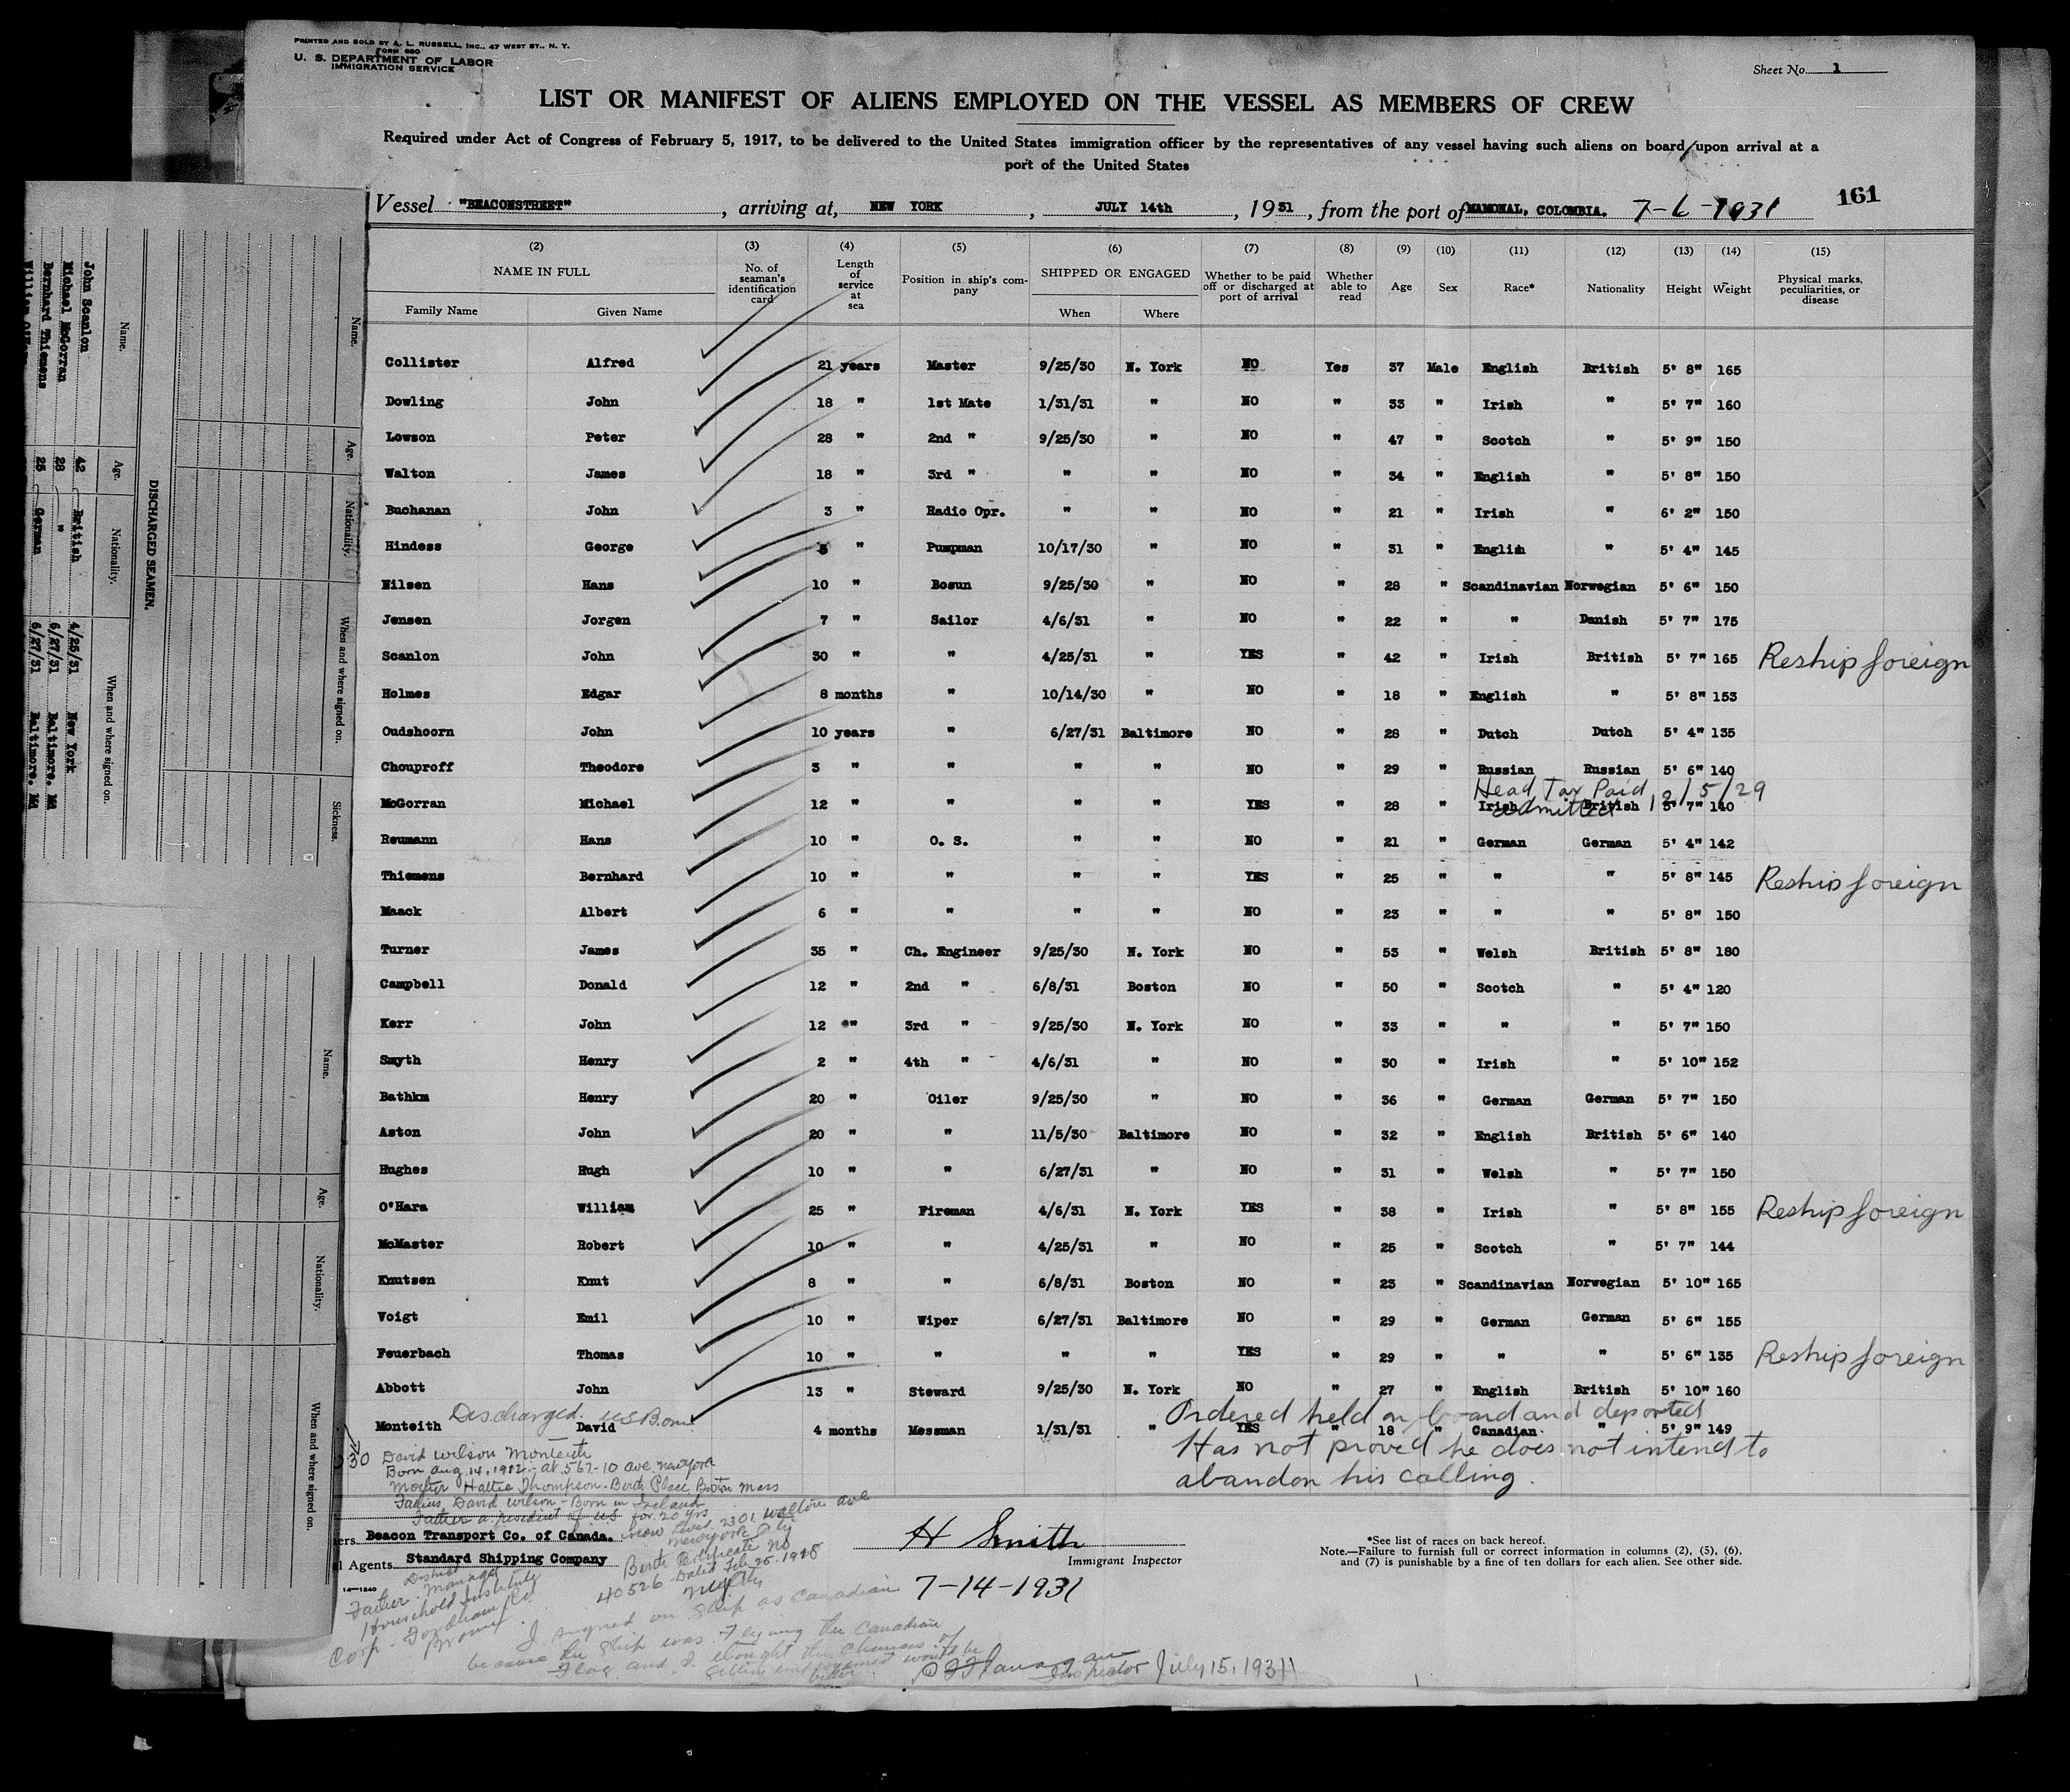 PRINTED AND SOLD BY A. L. RUSSELL, INC., 47 WEST ST., N. Y.
FORM 680
U. S. DEPARTMENT OF LABOR
IMMIGRATION SERVICE
Sheet No. 1
LIST OR MANIFEST OF ALIENS EMPLOYED ON THE VESSEL AS MEMBERS OF CREW
Required under Act of Congress of February 5, 1917, to be delivered to the United States immigration officer by the representatives of any vessel having such aliens on board upon arrival at a
port of the United States
161
Vessel "BEACONSTREET", arriving at, NEW YORK, JULY 14th, 1931, from the port of MAMONAL, COLOMBIA. 7-6-1931
(2) (3) (4) (5) (6) (7) (8) (9) (10) (11) (12) (13) (14) (15)
NAME IN FULL No. of seaman's identification card Length of service at sea Position in ship's company SHIPPED OR ENGAGED Whether to be paid off or discharged at port of arrival Whether able to read Age Sex Race* Nationality Height Weight Physical marks, peculiarities, or disease
Family Name Given Name When Where
Collister Alfred 21 years Master 9/25/30 N. York NO Yes 37 Male English British 5' 8" 165
Dowling John 18 " 1st Mate 1/31/31 " NO " 33 " Irish " 5' 7" 160
Lowson Peter 28 " 2nd " 9/25/30 " NO " 47 " Scotch " 5' 9" 150
Walton James 18 " 3rd " " " NO " 34 " English " 5' 8" 150
Buchanan John 3 " Radio Opr. " " NO " 21 " Irish " 6' 2" 150
Hindess George " Pumpman 10/17/30 " NO " 31 " English " 5' 4" 145
Nilsen Hans 10 " Bosun 9/25/30 " NO " 28 " Scandinavian Norwegian 5' 6" 150
Jensen Jorgen 7 " Sailor 4/6/31 " NO " 22 " " Danish 5' 7" 175
Scanlon John 30 " " 4/25/31 " YES " 42 " Irish British 5' 7" 165 Reship foreign
Holmes Edgar 8 months " 10/14/30 " NO " 18 " English " 5' 8" 153
Oudshoorn John 10 years " 6/27/31 Baltimore NO " 28 " Dutch Dutch 5' 4" 135
Chouproff Theodore 3 " " " " NO " 29 " Russian Russian 5' 6" 140
Head Tax Paid 12/5/29
McGorran Michael 12 " " " " YES " 28 " Irish British 5' 7" 140
admitted
Reumann Hans 10 " O. S. " " NO " 21 " German German 5' 4" 142
Thiemens Bernhard 10 " " " " YES " 25 " " " 5' 8" 145 Reship foreign
Maack Albert 6 " " " " NO " 23 " " " 5' 8" 150
Turner James 35 " Ch. Engineer 9/25/30 N. York NO " 53 " Welsh British 5' 8" 180
Campbell Donald 12 " 2nd " 6/8/31 Boston NO " 50 " Scotch " 5' 4" 120
Kerr John 12 " 3rd " 9/25/30 N. York NO " 33 " " " 5' 7" 150
Smyth Henry 2 " 4th " 4/6/31 " NO " 30 " Irish " 5' 10" 152
Bathkm Henry 20 " Oiler 9/25/30 " NO " 36 " German German 5' 7" 150
Aston John 20 " " 11/5/30 Baltimore NO " 32 " English British 5' 6" 140
Hughes Hugh 10 " " 6/27/31 " NO " 31 " Welsh " 5' 7" 150
O'Hara William 25 " Fireman 4/6/31 N. York YES " 38 " Irish " 5' 8" 155 Reship foreign
McMaster Robert 10 " " 4/25/31 " NO " 25 " Scotch " 5' 7" 144
Knutsen Knut 8 " " 6/8/31 Boston NO " 23 " Scandinavian Norwegian 5' 10" 165
Voigt Emil 10 " Wiper 6/27/31 Baltimore NO " 29 " German German 5' 6" 155
Feuerbach Thomas 10 " " " " YES " 29 " " " 5' 6" 135 Reship foreign
Abbott John 13 " Steward 9/25/30 N. York NO " 27 " English British 5' 10" 160
Discharged. US Born
Ordered held on board and deported
Monteith David 4 months Messman 1/31/31 " YES " 18 " Canadian " 5' 9" 149
Has not proved he does not intend to
abandon his calling.
30 David Wilson Monteith
Born Aug. 14, 1912 - at 567-10 ave. New York
Mother Hattie Thompson - Birth Place Boston Mass
Father David Wilson - Born in Ireland
Father a resident of US for 20 yrs
now lives 2301 Walton ave
New York City
Birth Certificate No
40526 Dated Feb. 25. 1918
Beacon Transport Co. of Canada.
Agents Standard Shipping Company
14-1240
Father District Manager
Household Institute
Corp - Fordham Rd
Bronx
I signed on ship as Canadian
because the ship was flying the Canadian
Flag and I thought the chances of
getting employment would be
better
H Smith
Immigrant Inspector
7-14-1931
Flanagan
Inspector July 15, 1931
*See list of races on back hereof.
Note.—Failure to furnish full or correct information in columns (2), (5), (6),
and (7) is punishable by a fine of ten dollars for each alien. See other side.
DISCHARGED SEAMEN.
Name. Age. Nationality. When and where signed on.
John Scanlon 42 British 4/25/31 New York
Michael McGorran 28 " 6/27/31 Baltimore. Md
Bernhard Thiemens 25 German 6/27/31 Baltimore. Md
Name. Age. Nationality. When and where signed on. Sickness.
Name. Age. Nationality. When and where signed on.